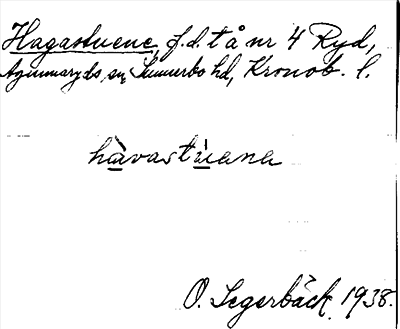 Hagastuene, f.d. t å nr 4 Ryd,
Agunnaryds sn, Sunnerbo hd, Kronob. l.
hàvastùana
O. Segerbäck 1938.